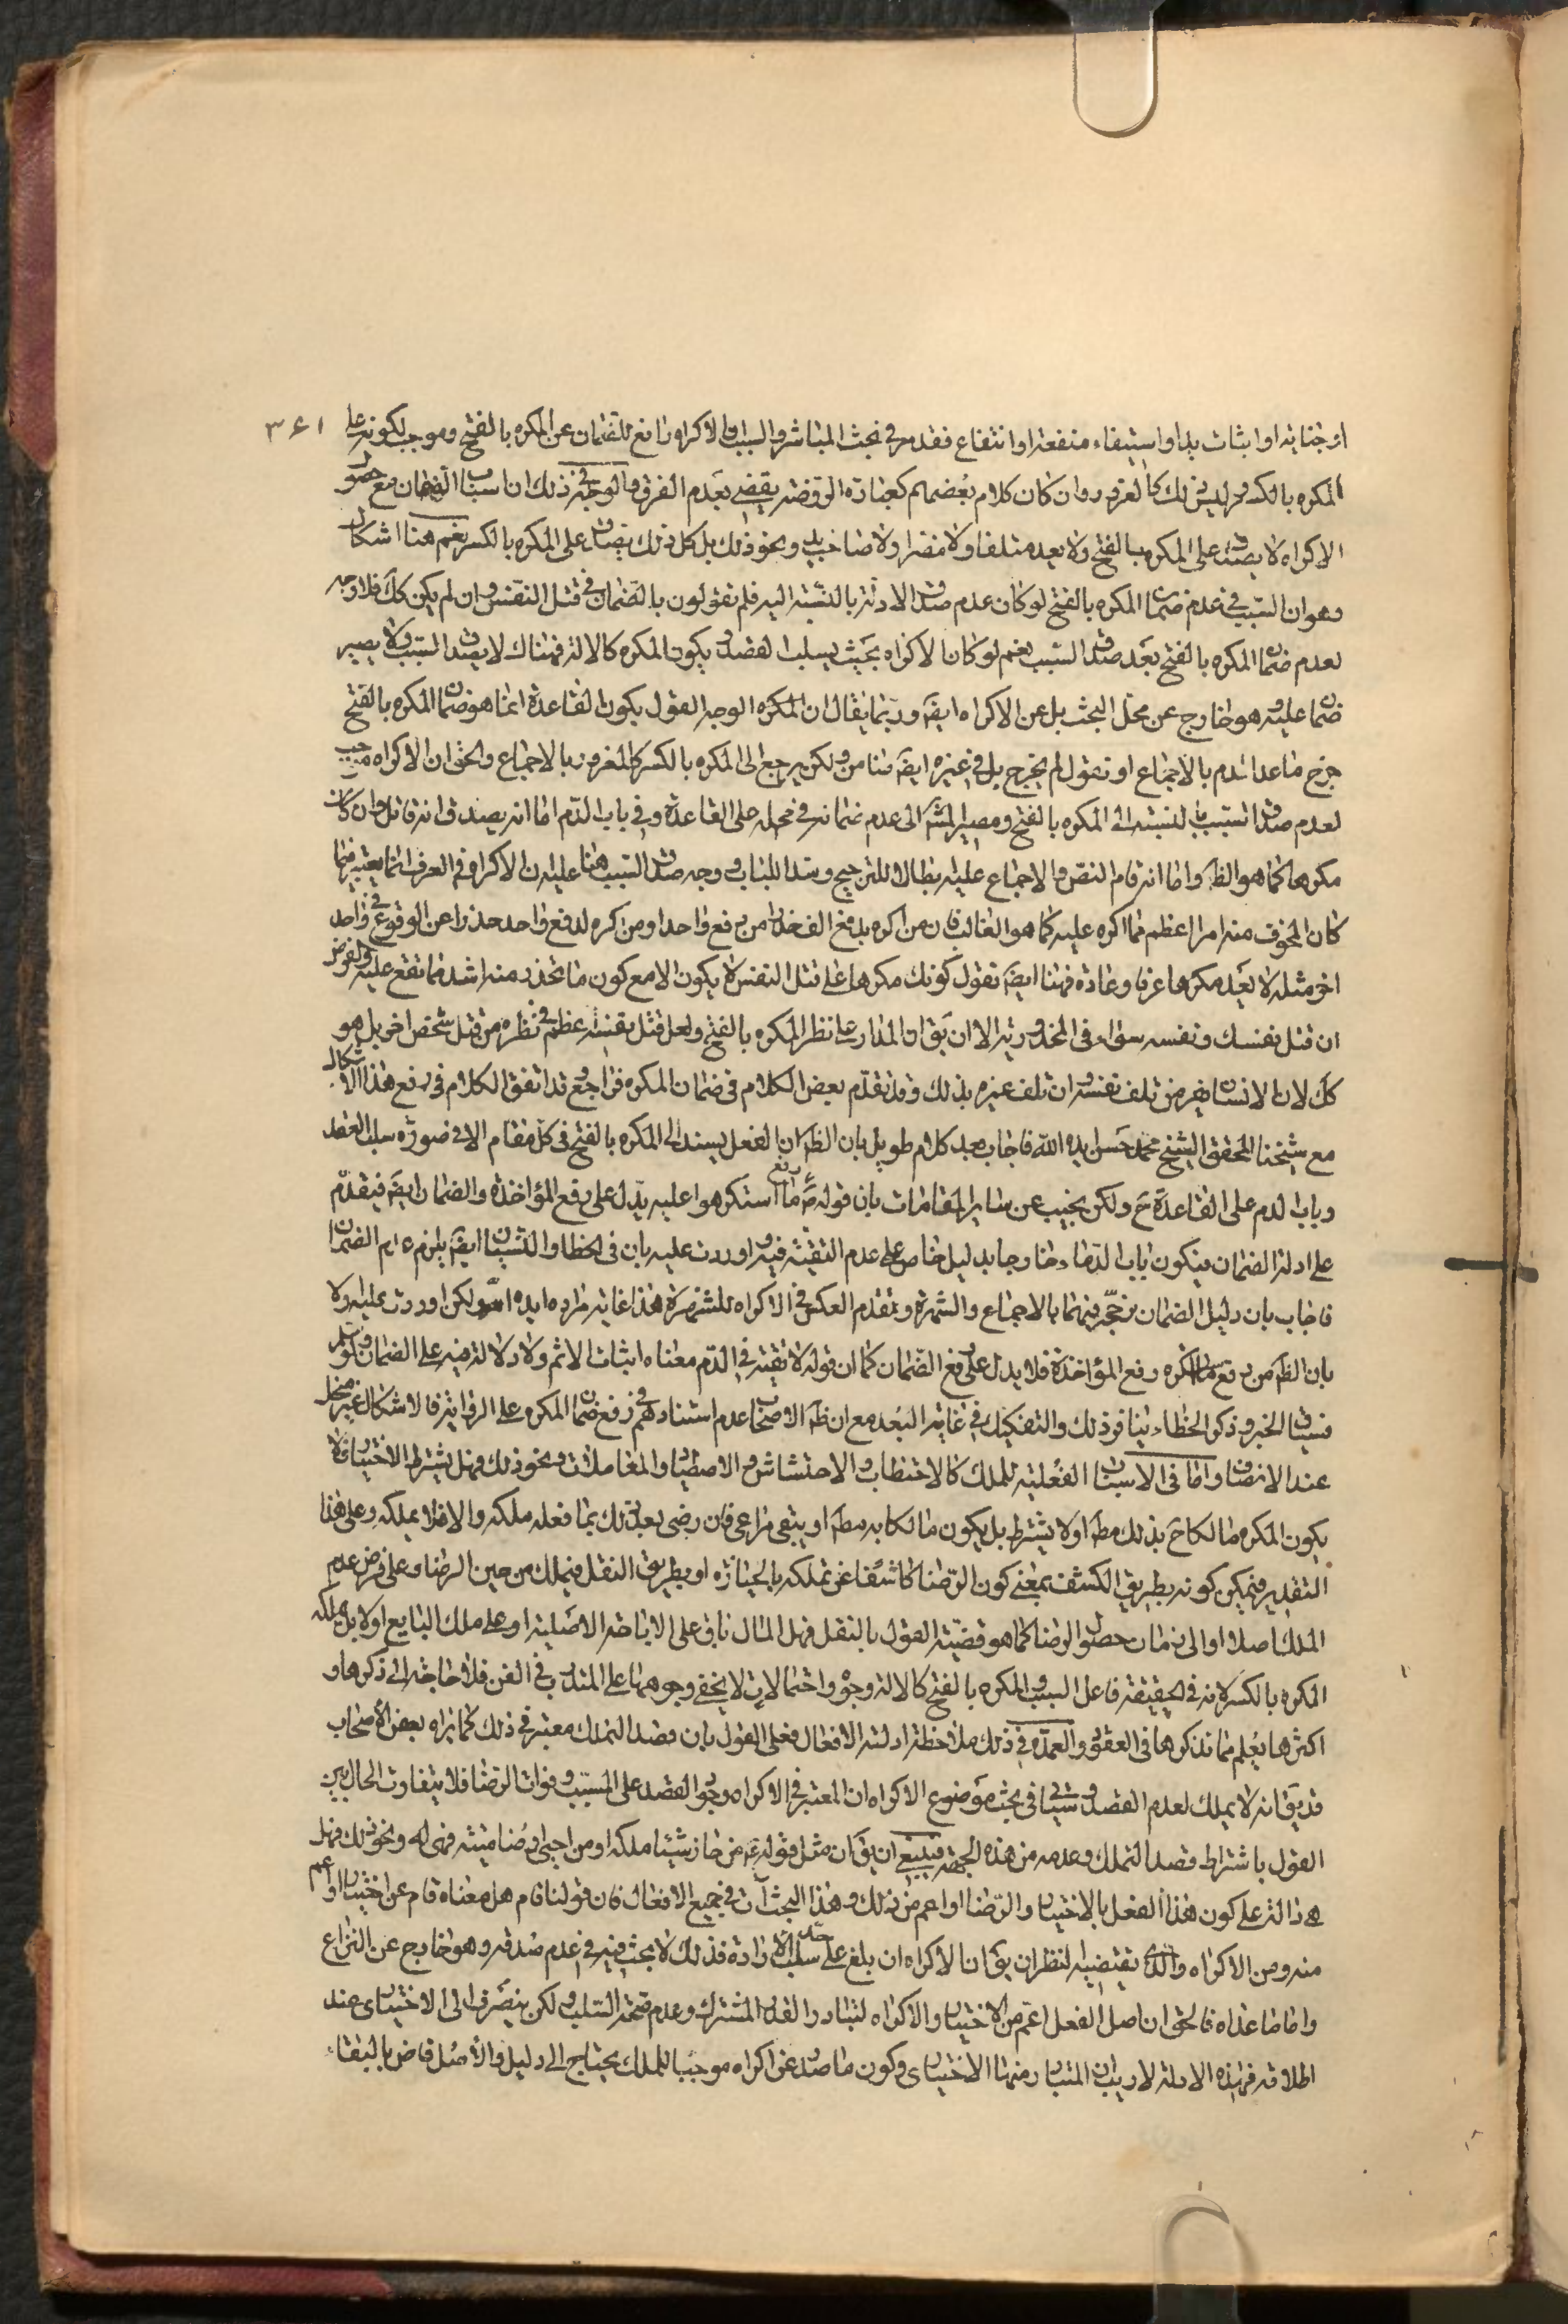 ٣٦١
او جناية او اثبات يد او استيفاء منفعة او انتفاع فقد مر في بحث المباشر والسبب ان الاكراه رافع للضمان عن المكره بالفتح وموجب لكونه على
المكره بالكسر وليس ذلك كالغرور وان كان كلام بعضهم كعبارة الروضة يقضي بعدم الفرق والوجه في ذلك ان اسباب الضمان مع حصول
الاكراه لا يصدق على المكره بالفتح ولا يعد متلفا ولا مضرا ولا صاحب يد ونحو ذلك بل كل ذلك يصدق على المكره بالكسر نعم هنا اشكال
وهو ان السبب في عدم ضمان المكره بالفتح لو كان عدم صدق الادلة بالنسبة اليه فلم تقولون بالضمان في قتل النفس وان لم يكن كك فلا وجه
لعدم ضمان المكره بالفتح بعد صدق السبب نعم لو كان الاكراه بحيث يسلب القصد ويكون المكره كالالة فهناك لا يصدق السبب ولا يصير
ضمان عليه وهو خارج عن محل البحث بل عن الاكراه ايضَ وربما يقال ان المكره الوجه القول بكون القاعدة انما هو ضمان المكره بالفتح
خرج ما عدا الدم بالاجماع او نقول لم يخرج بل في غيره ايضَ ضامن ولكن يرجع الى المكره بالكسر كالمغرور بالاجماع والحق ان الاكراه موجب
لعدم صدق السبب بالنسبة الى المكره بالفتح ومصير المش الى عدم ضمانه في محله على القاعدة وفي باب الدم اما انه يصدق انه قاتل وان كان
مكرها كما هو الظَ واما انه قام النص والاجماع عليه بطلان للترجيح وسدا للباب ووجه صدق السبب هنا عليه ان الاكراه في العرف انما يعتبر فيما
كان المخوف منه امرا اعظم مما اكره عليه كما هو الغالب فان من اكره بدفع الف خذرا من دفع واحد او من اكره لدفع واحد حذرا عن الوقوع في واحد
اخر مثله لا يعد مكرها عرفا وعادة فهنا ايضَ نقول كونك مكرها على قتل النفس لا يكون الا مع كون ما تحذر منه اشد مما تقع عليه والفرض
ان قتل نفسك ونفسه سواء في المحذورية الا ان يق ان المدار على نظر المكره بالفتح ولعل قتل نفسه اعظم في نظره من قتل شخص اخر بل هو
كك لان الانسان يفر من تلف نفسه وان تلف غيره بذلك وقد تقدم بعض الكلام في ضمان المكره فراجع وقد اتفق الكلام في رفع هذا الاشكال
مع شيخنا المحقق الشيخ محمد حسن ايده الله فاجاب بعد كلام طويل بان الظَ ان الفعل يسند الى المكره بالفتح في كل مقام الا في صورة سلب القصد
وباب الدم على القاعدة ح ولكن يجيب عن ساير المقامات بان قوله ص رفع ما استكرهوا عليه يدل على رفع المؤاخذة والضمان ايضَ فيقدم
على ادلة الضمان فيكون باب الدماء خارجا بدليل خاص على عدم التقية فيه واوردت عليه بان في الخطا والنسيان ايضَ يلزم عدم الضمان
فاجاب بان دليل الضمان نرجحه فيهما بالاجماع والشهرة ونقدم العكس في الاكراه للشهرة هذا غاية مراده ايده الله ولكن اوردت عليه اولا
بان الظَ من رفع ما اكره رفع المؤاخذة فلا يدل على رفع الضمان كما ان قوله لا تقية في الدم معناه اثبات الاثم ولا دلالة فيه على الضمان ولو سلم
فسياق الخبر وذكر الخطاء ينافي ذلك والتفكيك في غاية البعد مع ان ظَ الاصحاب عدم استنادهم في رفع ضمان المكره على الرواية فالاشكال غير منحل
عند الانصاف واما في الاسباب الفعلية للملك كالاحتطاب والاحتشاش والاصطياد والمعاملات ونحو ذلك فهل يشترط الاختيار فلا
يكون المكره مالكا ح بذلك مطَ او لا يشترط بل يكون مالكا به مطَ او يبقى مراعى فان رضي بعد ذلك بما فعله ملكه والا فلا يملكه وعلى هذا
التقدير فيمكن كونه بطريق الكشف بمعنى كون الرضا كاشفا عن تملكه بالحيازة او بطريق النقل فيملك من حين الرضا وعلى فرض عدم
الملك اصلا او الى زمان حصول الرضا كما هو قضية القول بالنقل فهل المال باق على الاباحة الاصلية او على ملك البايع او لا بل يملكه
المكره بالكسر لانه في الحقيقة فاعل السبب والمكره بالفتح كالالة وجوه واحتمالات لا يخفى وجوهها على المتدرب في الفن فلا حاجة الى ذكرها و
اكثرها يعلم مما نذكرها في العقود والعمدة في ذلك ملاحظة ادلة الافعال فعلى القول بان قصد التملك معتبر في ذلك كما يراه بعض الاصحاب
قد يق انه لا يملك لعدم القصد وسياتي في بحث موضوع الاكراه ان المعتبر في الاكراه وجود القصد على المسبب وفوات الرضا فلا يتفاوت الحال بين
القول باشتراط قصد التملك وعدمه من هذه الجهة فينبغي ان يق ان مثل قوله ع من حاز شيئا ملكه او من احيى ارضا ميتة فهي له ونحو ذلك فهل
هي دالة على كون هذا الفعل بالاختيار والرضا او اعم من ذلك وهذا البحث آت في جميع الافعال فان قولنا قام هل معناه قام عن اختيار او اعم
منه ومن الاكراه والذي يقتضيه النظر ان يق ان الاكراه ان بلغ على حد سلب الارادة فذلك لا بحث فيه في عدم صدقه وهو خارج عن النزاع
واما ما عداه فالحق ان اصل الفعل اعم من الاختيار والاكراه لتبادر القدر المشترك وعدم صحة السلب ولكن ينصرف الى الاختياري عند
اطلاقه فهذه الادلة لا ريب ان المتبادر منها الاختياري وكون ما صدر عن اكراه موجبا للملك يحتاج الى دليل والاصل قاض بالبقاء